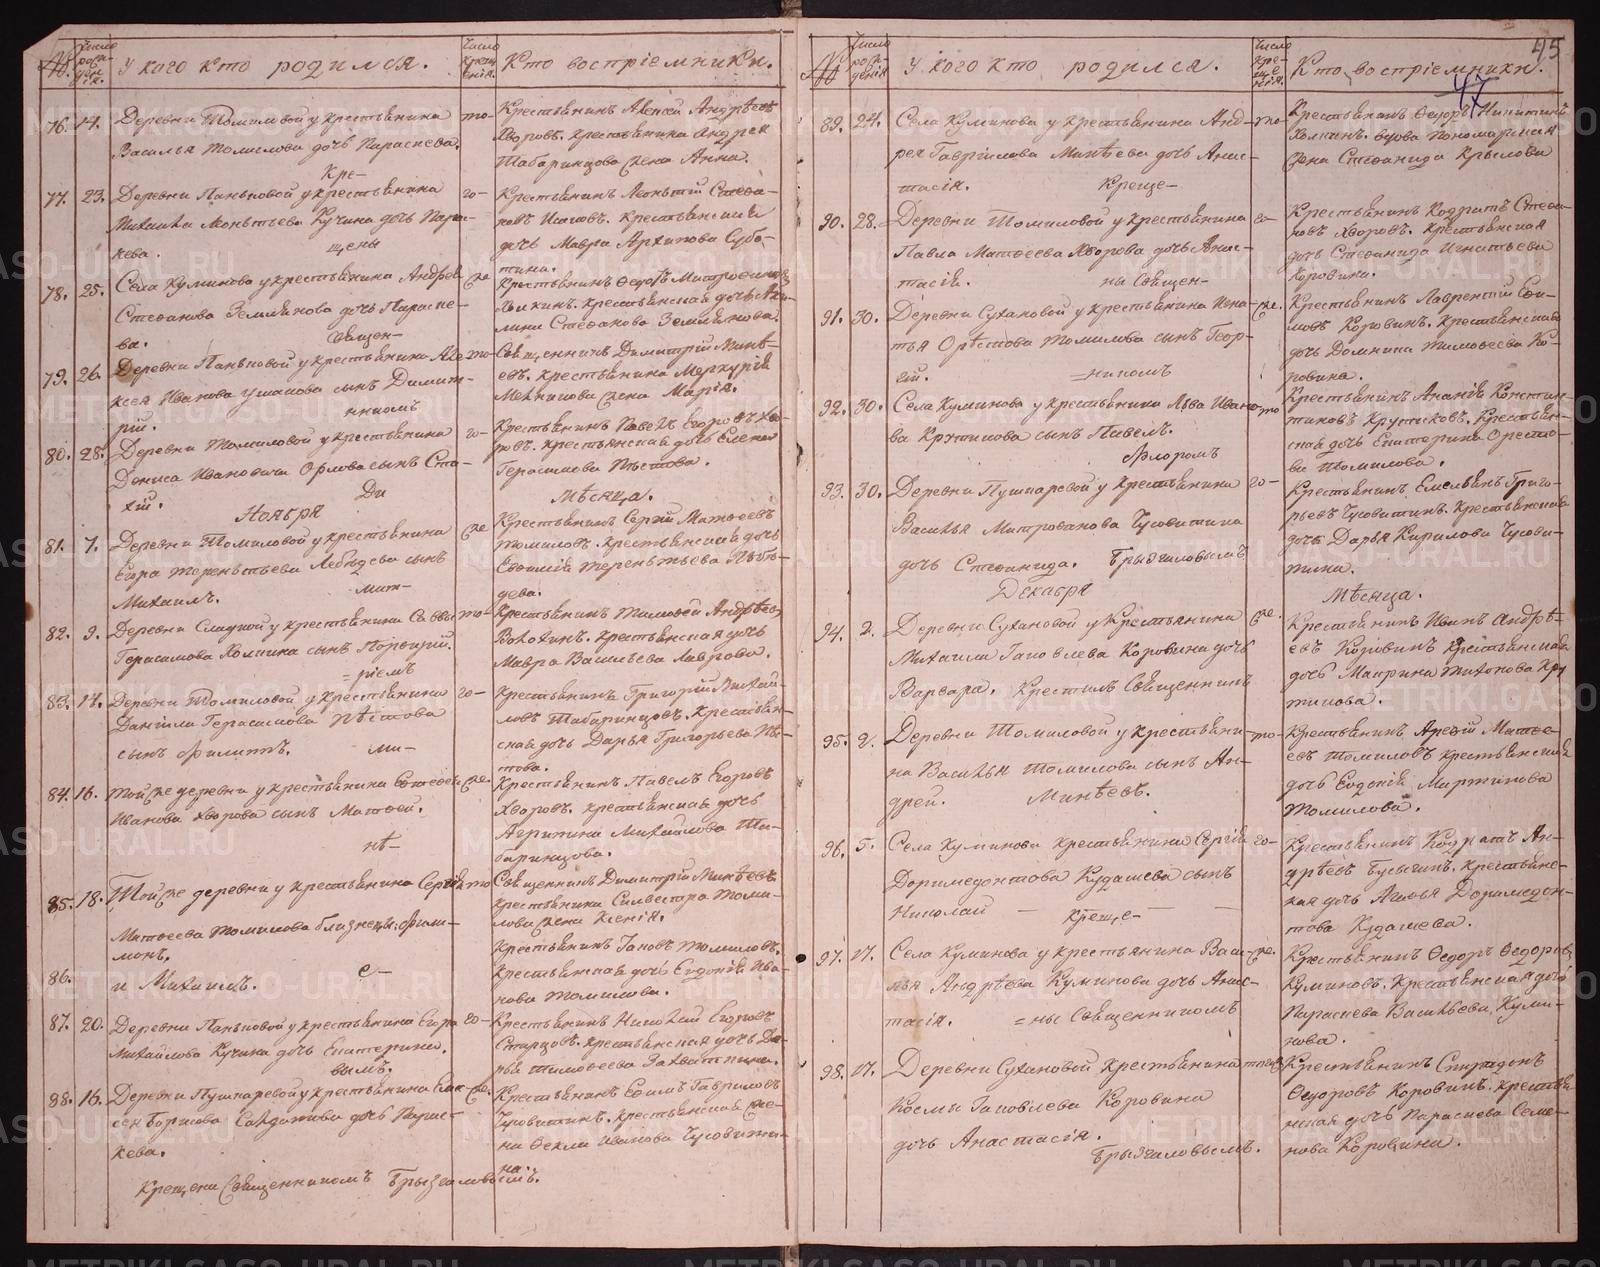 №. Число рожденiя. У кого кто родился. Число крещенiя. Кто воспрiемники.
76. 14. Деревни Томиловой у крестьянина то-
Василья Томилова дочь Параскева.
Крестьянинъ Алексей Андрѣевъ
Хворовъ. крестьянина Андрея
Шабаринцова жена Анна.
Кре-
77. 23. Деревни Паньковой у крестьянина го-
Михаила Леонтьева Кучина дочь Параскева.
щены
Крестьянинъ Леонтiй Степа-
новъ Исаковъ. Крестьянская
дочь Мавра Архипова Субо-
тина.
78. 25. Села Куминова у крестьянина Андрея же
Степанова Землянова дочь Параске-
ва.
Священ-
Крестьянинъ Ѳедоръ Митрофановъ
Холкинъ. Крестьянская дочь Аку-
лина Степанова Землянова.
79. 26. Деревни Паньковой у крестьянина Але- то-
ксея Иванова Ушакова сынъ Димит-
рiй.
никомъ
Священникъ Димитрiй Минѣ-
евъ. крестьянина Меркурiя
Мельникова жена Марiя.
80. 28. Деревни Томиловой у крестьянина го-
Дениса Ивановича Орлова сынъ Ста-
хiй.
Ди
Крестьянинъ Павелъ Егоровъ Хво-
ровъ. Крестьянская дочь Елена
Герасимова Пѣстова.
Ноября Мѣсяца.
81. 7. Деревни Томиловой у крестьянина же
Егора Терентьева Лебедева сынъ
Михаилъ.
мит-
Крестьянинъ Сергiй Матѳеевъ
Томиловъ. Крестьянская дочь
Евѳимiя Терентьева Лебе-
дева.
82. 9. Деревни Сладкой у крестьянина Саввы то-
Герасимова Холкина сынъ Порфирiй.
=рiемъ
Крестьянинъ Тимоѳей Андрѣевъ
Волохинъ. Крестьянская дочь
Мавра Васильева Лаврова.
83. 14. Деревни Томиловой у крестьянина го-
Данiила Герасимова Пѣстова
сынъ Филиппъ.
ми-
Крестьянинъ Григорiй Михай-
ловъ Шабаринцовъ. Крестьян-
ская дочь Дарья Григорьева Пѣ-
това.
84. 16. Той же деревни у крестьянина Евфимея же
Иванова Хворова сынъ Матѳей.
нѣ-
Крестьянинъ Павелъ Егоровъ
Хворовъ. крестьянская дочь
Агрипина Михайлова Ша-
баринцова.
85. 18. Той же деревни у крестьянина Сергiя то
Матѳеева Томилова близнецы: Фили-
монъ,
Священникъ Димитрiй Минѣевъ
крестьянина Сильвестра Томи-
лова жена Ксенiя.
86. и Михаилъ.
е-
Крестьянинъ Iаковъ Томиловъ.
крестьянская дочь Евдокiя Ива-
нова Томилова.
87. 20. Деревни Паньковой у крестьянина Егора го-
Михайлова Кучина дочь Екатерина.
вымъ.
Крестьянинъ Николай Егоровъ
Старцовъ. крестьянская дочь Да-
рья Тимоѳеева Захваткина.
88. 16. Деревни Пушкаревой у крестьянина Але- же.
ксея Борисова Солдаткина дочь Парас-
кева.
Крестьянинъ Ефимъ Гавриловъ
Чусовитинъ. крестьянская же-
на Ѳекла Иванова Чусовити-
на.
Крещены Священникомъ Брызгаловымъ.
45
47
№ Число рожденiя У кого кто родился. Число крещенiя. Кто воспрiемники.
89. 24. Села Куминова у крестьянина Анд- то-
рея Гаврiилова Минѣева дочь Анас-
тасiя.
Креще-
Крестьянинъ Ѳедоръ Никитинъ
Холкинъ. вдова Пономарская
жена Стефанида Крылова
90. 28. Деревни Томиловой у крестьянина го-
Павла Матѳеева Хворова дочь Анас-
тасiя.
ны Священ-
Крестьянинъ Кодратъ Степа-
новъ Хворовъ. Крестьянская
дочь Стефанида Игнатьева
Коровина.
91. 30. Деревни Сухановой у крестьянина Игна- же.
тья Орѣстова Томилова сынъ Геор-
гiй.
=никомъ
Крестьянинъ Лаврентiй Еѳи-
мовъ Коровинъ. Крестьянская
дочь Домнина Тимоѳеева Ко-
ровина.
92. 30. Села Куминова у крестьянина Льва Ивано- то
ва Крутикова сынъ Павелъ.
Флоромъ
Крестьянинъ Ананiй Констан-
тиновъ Крутиковъ. Крестьян-
ская дочь Екатерина Оресто-
ва Томилова.
93. 30. Деревни Пушкаревой у крестьянина го-
Василья Митрофанова Чусовитина
дочь Стефанида. Брызгаловымъ
Крестьянинъ Емельянъ Григо-
рьевъ Чусовитинъ. Крестьянская
дочь Дарья Кирилова Чусови-
тина.
Декабря Мѣсяца.
94. 2. Деревни Сухановой у Крестьянина же.
Михаила Iаковлева Коровина дочь
Варвара. Крестилъ Священникъ
Крестьянинъ Иванъ Андрѣ-
евъ Коровинъ Крестьянская
дочь Матрина Тихонова Кру
тикова.
95. 2. Деревни Томиловой у Крестьяни- то-
на Василья Томилова сынъ Ан-
дрей. Минѣевъ.
Крестьянинъ Арсенiй Матѳе-
евъ Томиловъ крестьянская
дочь Евдокiя Мартинова
Томилова.
96. 5. Села Куминова крестьянина Сергiя го-
Доримедонтова Кудашева сынъ
Николай
Креще-
Крестьянинъ Кодратъ Ан-
дрѣевъ Бусыгинъ. Крестьянс-
кая дочь Агафья Доримедон-
това Кудашева.
97. 17. Села Куминова у крестьянина Васи- же.
лья Андрѣева Куминова дочь Анас-
тасiя. =ны Священникомъ
Крестьянинъ Ѳедоръ Ѳедоровъ
Куминовъ. Крестьянская дочь
Параскева Васильева Куми-
нова.
98. 17. Деревни Сухановой крестьянина
Космы Iаковлева Коровина
дочь Анастасiя.
Брызгаловымъ.
Крестьянинъ Спиридонъ
Ѳедоровъ Коровинъ. Крестьян-
ская дочь Параскева Семе-
нова Коровина.